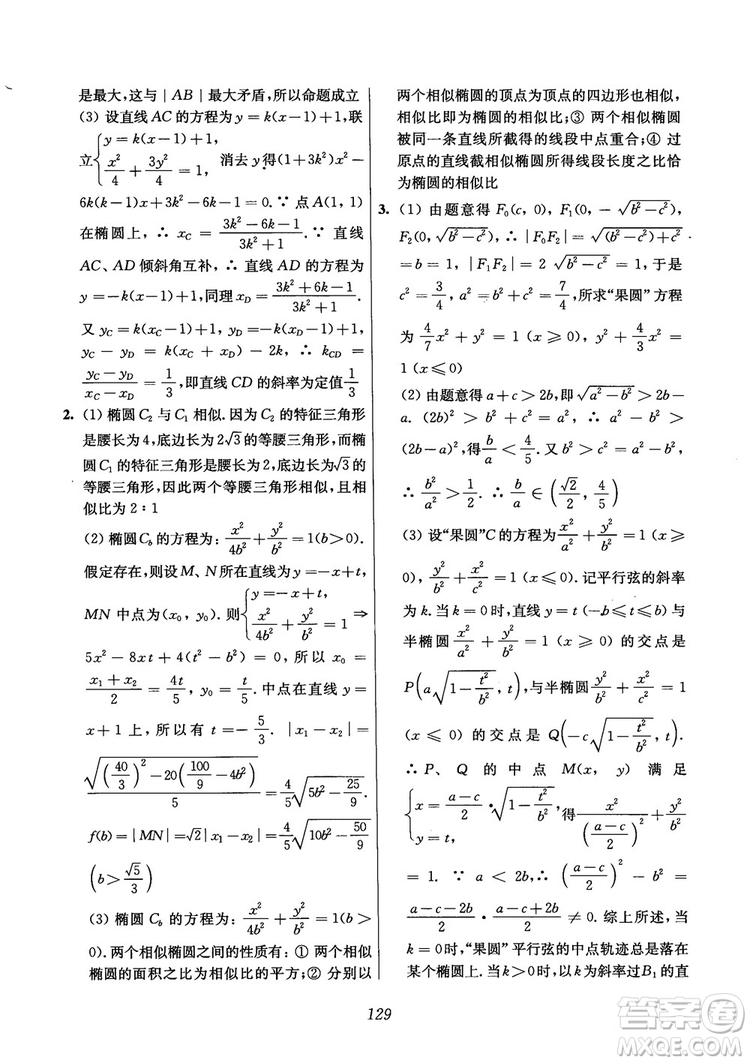 是最大，这与｜AB｜最大矛盾，所以命题成立
(3) 设直线 AC 的方程为 y=k(x-1)+1，联
立{y=k(x-1)+1, x²/4+3y²/4=1, 消去 y 得(1+3k²)x²-
6k(k-1)x+3k²-6k-1=0. ∵ 点 A(1, 1)
在椭圆上，∴ x_C=(3k²-6k-1)/(3k²+1). ∵ 直线
AC、AD 倾斜角互补，∴ 直线 AD 的方程为
y=-k(x-1)+1，同理 x_D=(3k²+6k-1)/(3k²+1).
又 y_C=k(x_C-1)+1, y_D=-k(x_D-1)+1,
y_C-y_D=k(x_C+x_D)-2k, ∴ k_CD=
(y_C-y_D)/(x_C-x_D)=1/3，即直线 CD 的斜率为定值 1/3
2. (1) 椭圆 C₂ 与 C₁ 相似. 因为 C₂ 的特征三角形
是腰长为 4，底边长为 2√3 的等腰三角形，而椭
圆 C₁ 的特征三角形是腰长为 2，底边长为√3 的
等腰三角形，因此两个等腰三角形相似，且相
似比为 2∶1
(2) 椭圆 C_b 的方程为：x²/4b²+y²/b²=1(b>0).
假定存在，则设 M、N 所在直线为 y=-x+t，
MN 中点为(x₀, y₀). 则{y=-x+t, x²/4b²+y²/b²=1 ⇒
5x²-8xt+4(t²-b²)=0，所以 x₀=
(x₁+x₂)/2=4t/5, y₀=t/5. 中点在直线 y=
x+1 上，所以有 t=-5/3. |x₁-x₂|=
√((40/3)²-20(100/9-4b²))/5=4/5√(5b²-25/9).
f(b)=|MN|=√2|x₁-x₂|=4/5√(10b²-50/9)
(b>√5/3)
(3) 椭圆 C_b 的方程为：x²/4b²+y²/b²=1(b>
0). 两个相似椭圆之间的性质有：① 两个相似
椭圆的面积之比为相似比的平方；② 分别以
两个相似椭圆的顶点为顶点的四边形也相似，
相似比即为椭圆的相似比；③ 两个相似椭圆
被同一条直线所截得的线段中点重合；④ 过
原点的直线截相似椭圆所得线段长度之比恰
为椭圆的相似比
3. (1) 由题意得 F₀(c, 0), F₁(0, -√(b²-c²)),
F₂(0, √(b²-c²)), ∴ |F₀F₂|=√((b²-c²)+c²)
=b=1, |F₁F₂|=2√(b²-c²)=1，于是
c²=3/4, a²=b²+c²=7/4，所求“果圆”方程
为 4/7x²+y²=1 (x⩾0), y²+4/3x²=
1(x⩽0)
(2) 由题意得 a+c>2b，即√(a²-b²)>2b-
a. (2b)²>b²+c²=a² ∴ a²-b²>
(2b-a)²，得 b/a<4/5. 又 b²>c²=a²-b²,
∴ b²/a²>1/2, ∴ b/a∈(√2/2, 4/5)
(3) 设“果圆”C 的方程为 x²/a²+y²/b²=1(x⩾
0), y²/b²+x²/c²=1(x⩽0). 记平行弦的斜率
为 k. 当 k=0 时，直线 y=t (-b⩽t⩽b)与
半椭圆 x²/a²+y²/b²=1(x⩾0)的交点是
P(a√(1-t²/b²), t)，与半椭圆 y²/b²+x²/c²=1
(x⩽0)的交点是 Q(-c√(1-t²/b²), t)
∴ P、Q 的中点 M(x, y) 满足
{x=(a-c)/2·√(1-t²/b²), y=t, 得 x²/((a-c)/2)²+y²/b²
=1. ∵ a<2b, ∴ ((a-c)/2)²-b²=
(a-c-2b)/2·(a-c+2b)/2≠0. 综上所述，当
k=0 时，“果圆”平行弦的中点轨迹总是落在
某个椭圆上. 当 k>0 时，以 k 为斜率过 B₁ 的直
129
答案圈
MXQE.COM